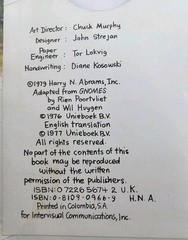 Art Director: Chuck Murphy
Designer: John Strejan
Paper
Engineer: Tor Lokvig
Handwriting: Diane Kosowski
©1979 Harry N. Abrams, Inc.
Adapted from GNOMES
by Rien Poortvliet
and Wil Huygen
©1976 Unieboek B.V.
English translation
©1977 Unieboek B.V.
All rights reserved.
No part of the contents of this
book may be reproduced
without the written
permission of the publishers.
ISBN: 0 7226 5674 2 U.K.
ISBN: 0-8109-0966-9 H.N.A.
Printed in Colombia, S.A.
for Intervisual Communications, Inc.